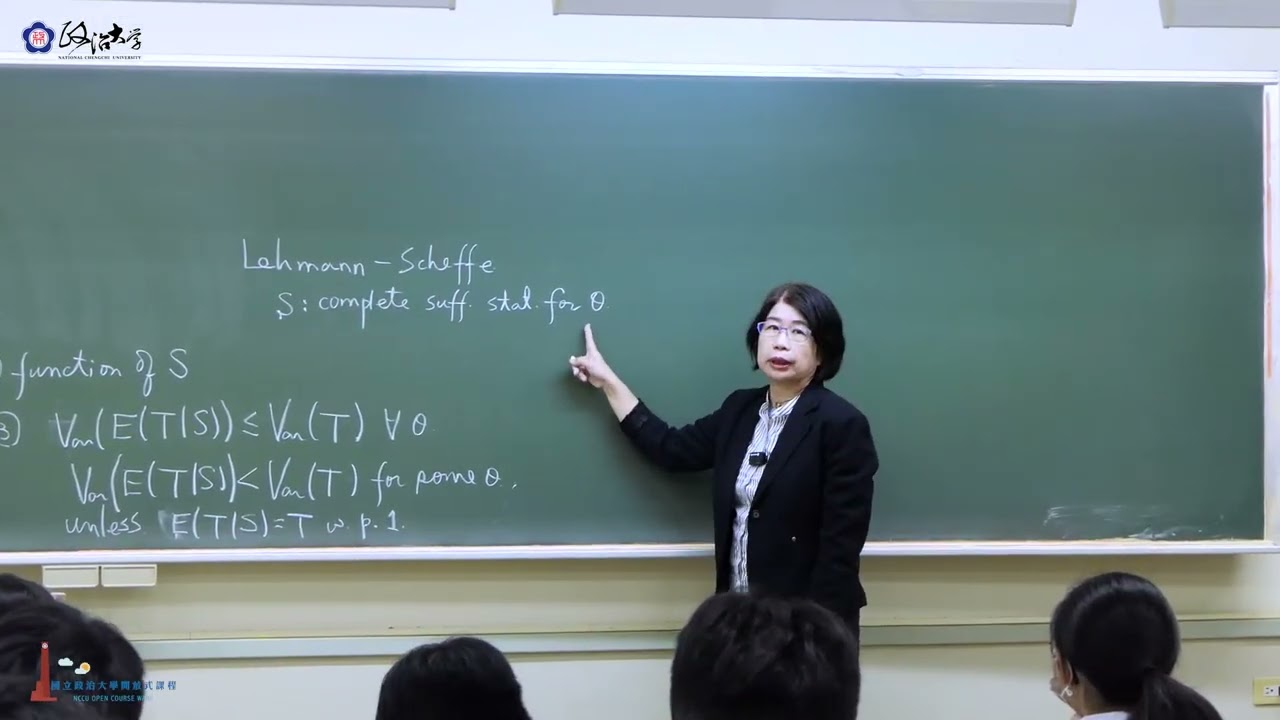 政治大學
NATIONAL CHENGCHI UNIVERSITY
Lehmann - Scheffe
S: complete suff. stat. for θ.
function of S
③ Var(E(T|S)) ≤ Var(T) ∀ θ
Var(E(T|S)) < Var(T) for some θ,
unless E(T|S) = T w.p.1.
國立政治大學開放式課程
NCCU OPEN COURSE